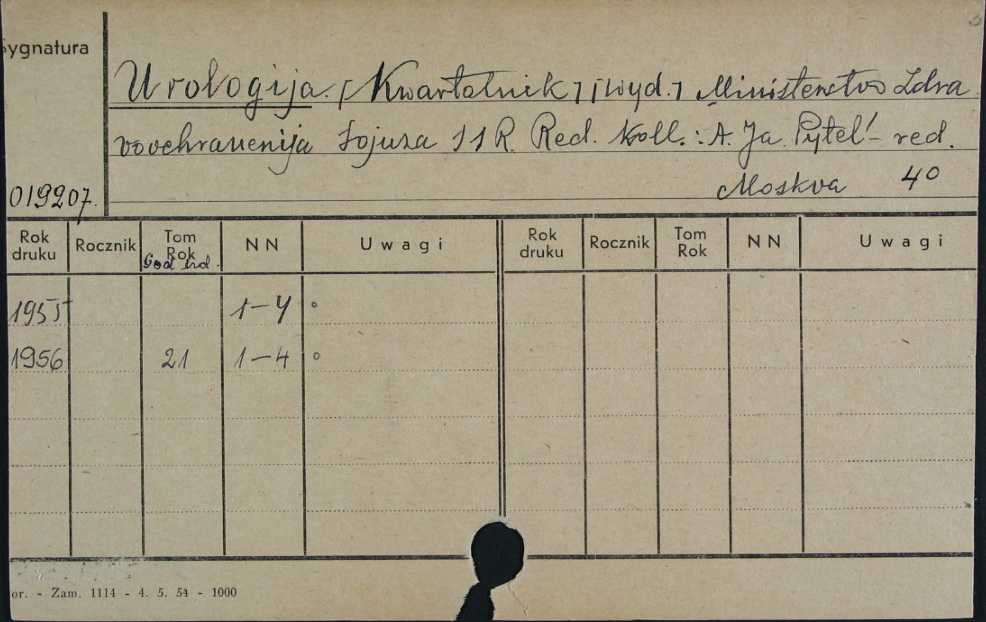 Sygnatura
Urologija. [Kwartalnik] [Wyd.] Ministerstvo Zdra
voochranenija Sojuza SSR. Red. Koll.: A. Ja. Pytel' - red.
019207. Moskva 4°
Rok druku Rocznik Tom Rok God izd. NN Uwagi Rok druku Rocznik Tom Rok NN Uwagi
1955 1-4 °
1956 21 1-4 °
or. - Zam. 1114 - 4. 5. 54 - 1000